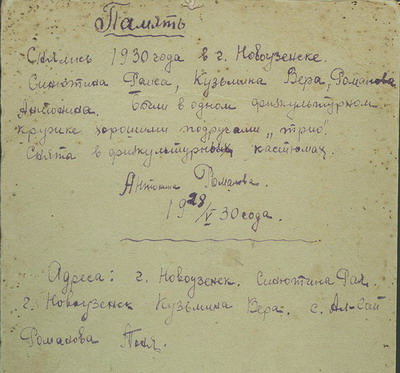 Память
Снялись 1930 года в г. Новоузенске.
Синютина Раиса, Кузьмина Вера, Романова
Антонина. Были в одном физкультурном
кружке хорошими подругами „трио".
Снята в физкультурных кастюмах.
Романова.
19 28/V 30 года.
Адреса: г. Новоузенск. Синютина Рая.
г. Новоузенск Кузьмина Вера. с. Ал-Гай
Романова Тоня.